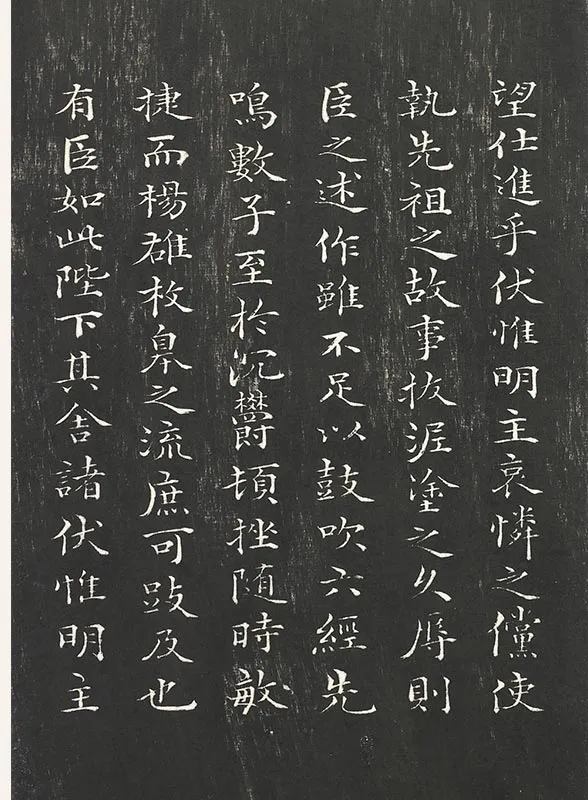 望仕進乎伏惟明主哀憐之儻使
執先祖之故事拔泥塗之久辱則
臣之述作雖不足以鼓吹六經先
鳴數子至於沉鬱頓挫随時敏
捷而楊雄枚皋之流庶可跂及也
有臣如此陛下其舍諸伏惟明主